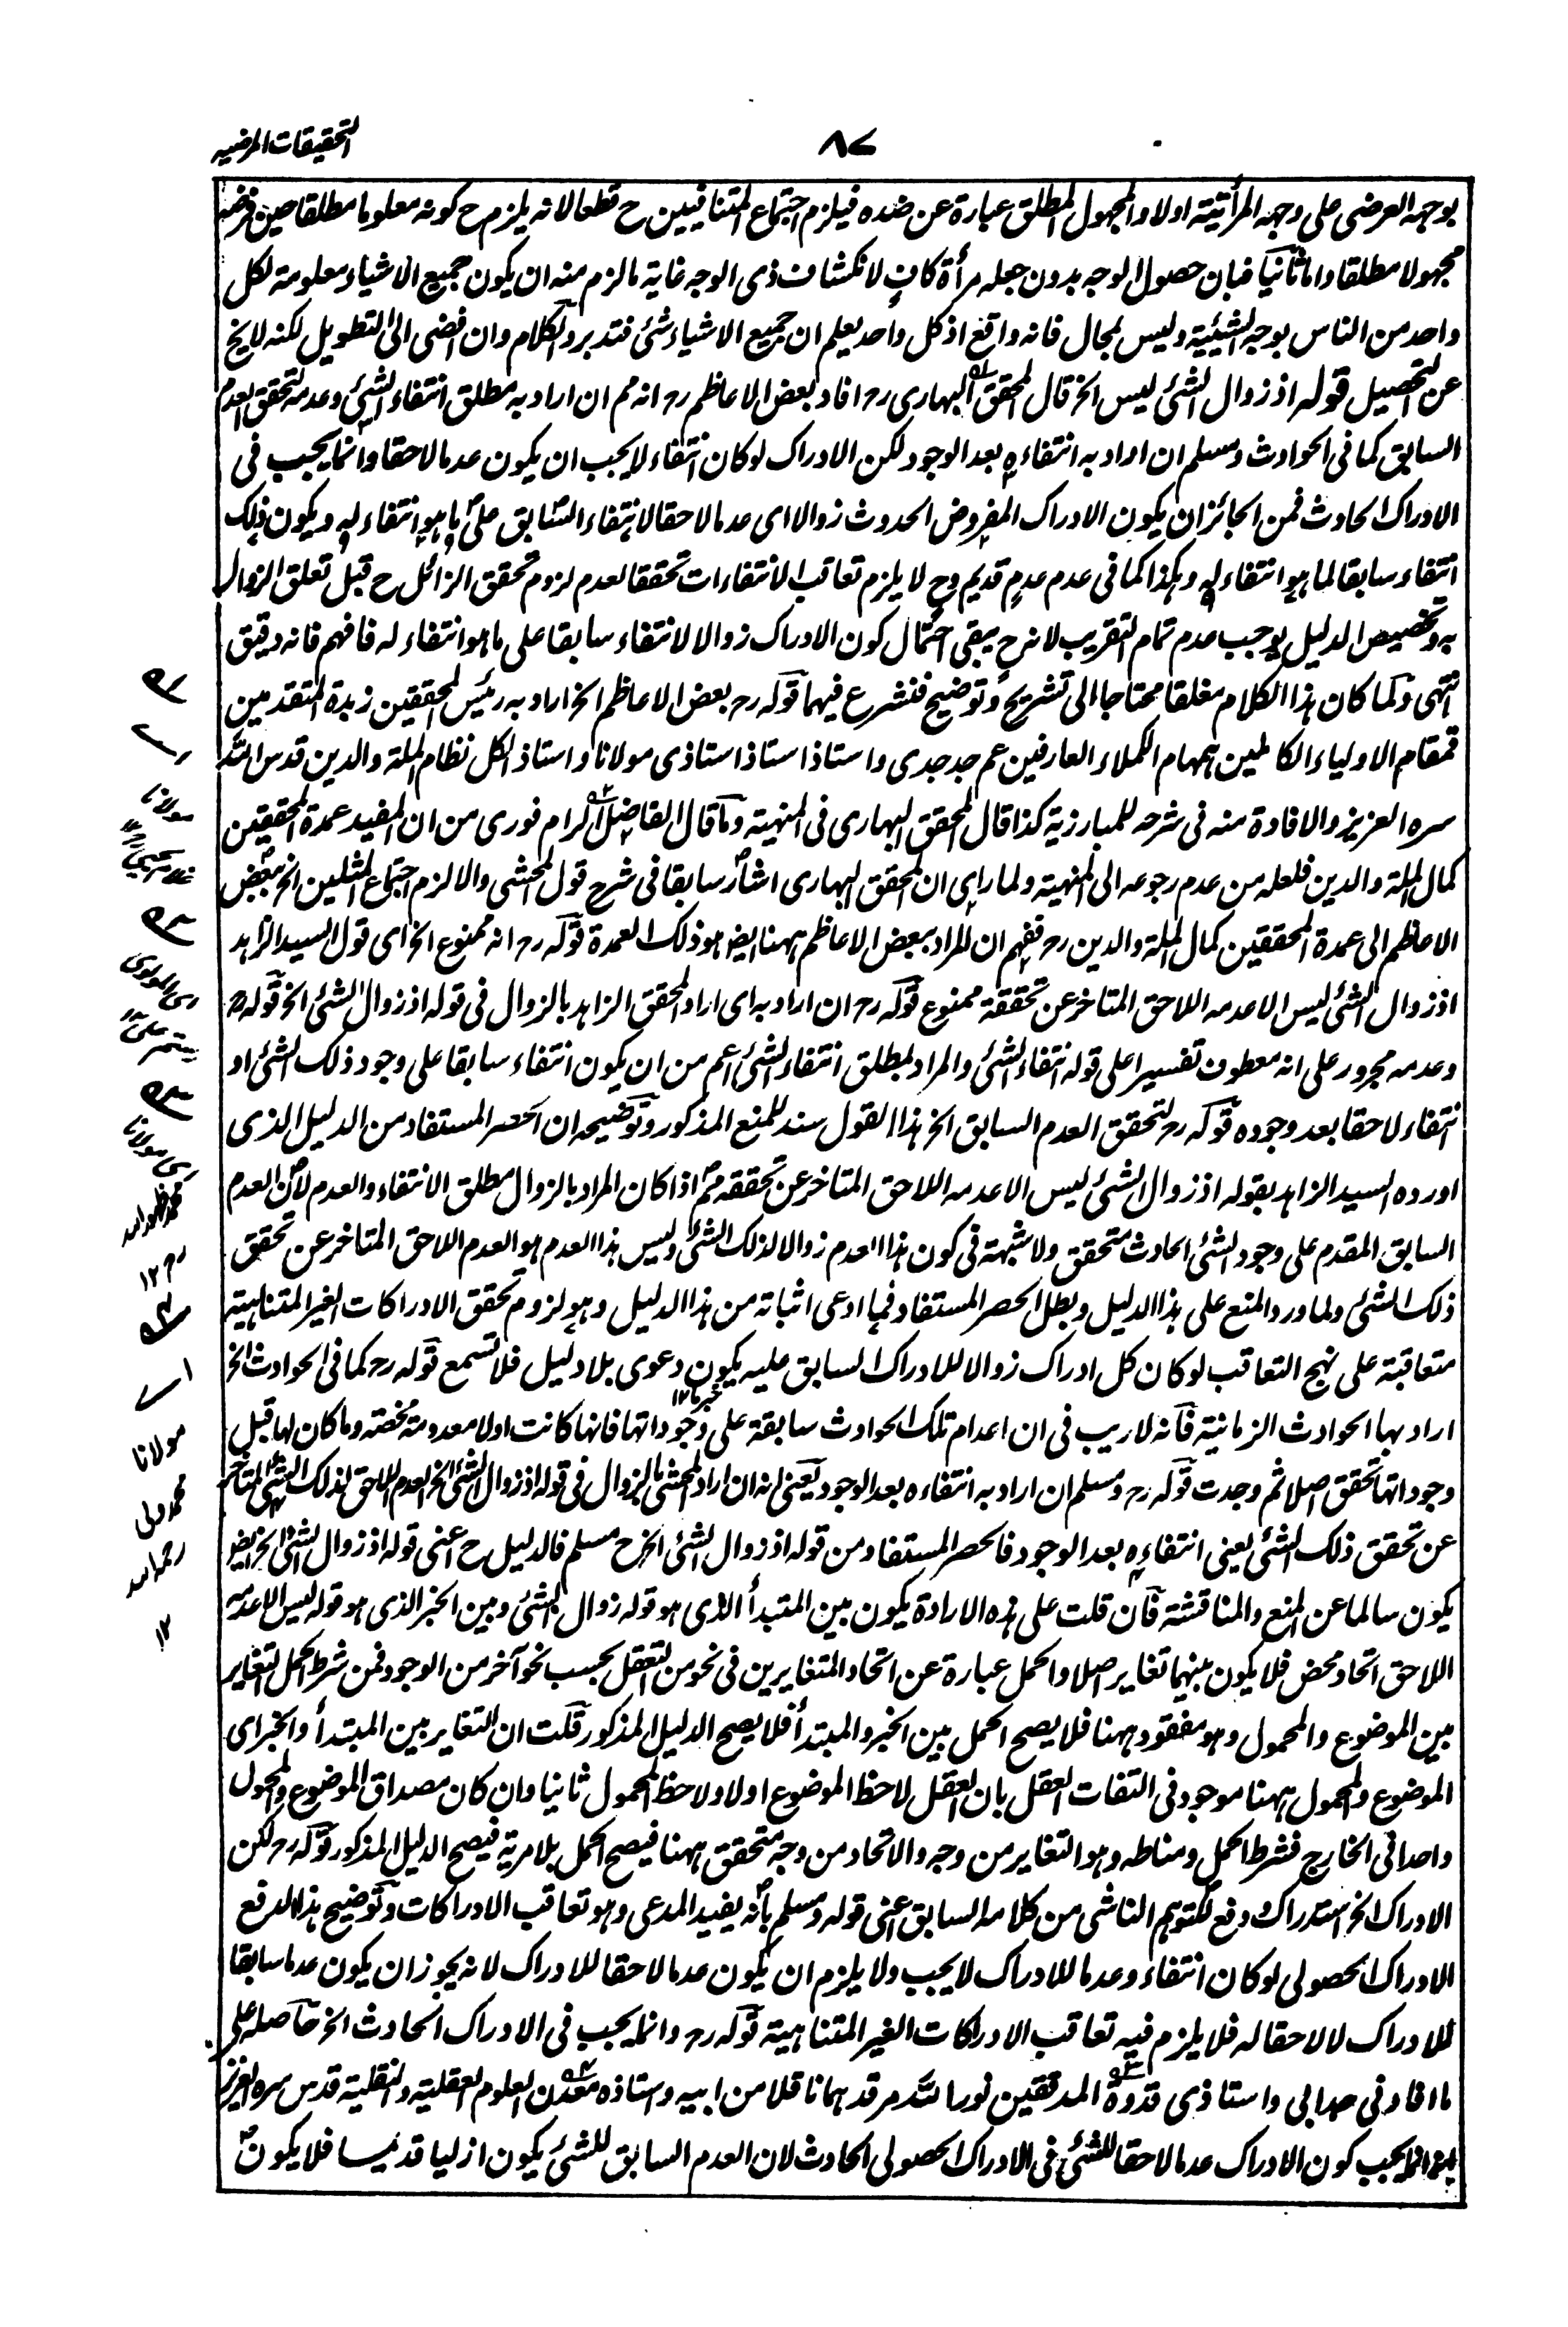 التحقيقات المرضیه
۸۷
بوجه العرضی علی وجه المرأتیة اولا والمجهول المطلق عبارة عن ضده فیلزم اجتماع المتنافیین ح قطعا لانه یلزم ح کونه معلوما مطلقا حین فرضه
مجهولا مطلقا واما ثانیا فبان حصول الوجه بدون جعله مرأة کاف لانکشاف ذی الوجه غایة مالزم منه ان یکون جمیع الاشیاء معلومة لکل
واحد من الناس بوجه الشیئیة ولیس بمحال فانه واقع اذ کل واحد یعلم ان جمیع الاشیاء شئ فتدبر والکلام وان افضی الی التطویل لکنه لا یخ
عن التحصیل قوله اذ زوال الشئ لیس الخ قال المحقق البهاری رح افاد بعض الاعاظم رح انه مم ان اراد به مطلق انتفاء الشئ وعدمه لتحقق العدم
السابق کما فی الحوادث ومسلم ان اراد به انتفاءه بعد الوجود لکن الادراک لو کان انتفاء لا یجب ان یکون عدما لاحقا وانما یجب فی
الادراک الحادث فمن الجائز ان یکون الادراک المفروض الحدوث زوالا ای عدما لاحقا لانتفاء السابق علی ما هو انتفاء له ویکون ذلک
انتفاء سابقا لما هو انتفاء له وهکذا کما فی عدم عدم قدیم وح لا یلزم تعاقب الانتفاءات تحققا لعدم لزوم تحقق الزائل ح قبل تعلق الزوال
به وتخصیص الدلیل یوجب عدم تمام التقریب لانه ح یبقی احتمال کون الادراک زوالا لانتفاء سابقا علی ما هو انتفاء له فافهم فانه دقیق
انتهی ولما کان هذا الکلام مغلقا محتاجا الی تشریح وتوضیح فنشرع فیهما قوله رح بعض الاعاظم الخ اراد به رئیس المحققین زبدة المتقدمین
قمقام الاولیاء الکاملین همهام الکملاء العارفین عم جد جدی واستاذ استاذ استاذی مولانا واستاذ الکل نظام الملة والدین قدس الله
سره العزیز والافادة منه فی شرحه للمبارزیة کذا قال المحقق البهاری فی المنهیة وما قال الفاضل الرام فوری من ان المفید عمدة المحققین
کمال الملة والدین فلعله من عدم رجوعه الی المنهیة ولما رای ان المحقق البهاری اشار سابقا فی شرح قول المحشی والا لزم اجتماع المثلین الخ ببعض
الاعاظم الی عمدة المحققین کمال الملة والدین رح ففهم ان المراد ببعض الاعاظم ههنا ایضا هو ذلک العمدة قوله رح انه ممنوع الخ ای قول السید الزاهد
اذ زوال الشئ لیس الا عدمه اللاحق المتاخر عن تحققة ممنوع قوله رح ان اراد به ای اراد المحقق الزاهد بالزوال فی قوله اذ زوال الشئ الخ قوله رح
وعدمه مجرور علی انه معطوف تفسیرا علی قوله انتفاء الشئ والمراد بمطلق انتفاء الشئ اعم من ان یکون انتفاء سابقا علی وجود ذلک الشئ او
انتفاء لاحقا بعد وجوده قوله رح لتحقق العدم السابق الخ هذا القول سند للمنع المذکور وتوضیحه ان الحصر المستفاد من الدلیل الذی
اورده السید الزاهد بقوله اذ زوال الشئ لیس الا عدمه اللاحق المتاخر عن تحققه مم اذا کان المراد بالزوال مطلق الانتفاء والعدم لان العدم
السابق المقدم علی وجود الشئ الحادث متحقق ولا شبهة فی کون هذا العدم زوالا لذلک الشئ ولیس هذا العدم هو العدم اللاحق المتاخر عن تحقق
ذلک الشئ ولما ورد المنع علی هذا الدلیل وبطل الحصر المستفاد فما ادعی اثباته من هذا الدلیل وهو لزوم تحقق الادراکات الغیر المتناهیة
متعاقبة علی نهج التعاقب لو کان کل ادراک زوالا للادراک السابق علیه یکون دعوی بلا دلیل فلا تسمع قوله رح کما فی الحوادث الخ
اراد بها الحوادث الزمانیة فانه لاریب فی ان اعدام تلک الحوادث سابقة علی وجوداتها فانها کانت اولا معدومة محضة وما کان لها قبل
وجوداتها تحقق اصلا ثم وجدت قوله رح ومسلم ان اراد به انتفاءه بعد الوجود یعنی انه ان اراد المحشی بالزوال فی قوله اذ زوال الشئ الخ العدم اللاحق لذلک الشئ المتاخر
عن تحقق ذلک الشئ یعنی انتفاءه بعد الوجود فالحصر المستفاد من قوله اذ زوال الشئ الخ ح مسلم فالدلیل ح اعنی قوله اذ زوال الشئ الخ ایضا
یکون سالما عن المنع والمناقشة فان قلت علی هذه الارادة یکون بین المتبدأ الذی هو قوله زوال الشئ وبین الخبر الذی هو قوله لیس الا عدمه
اللاحق اتحاد محض فلا یکون بینهما تغایر اصلا والحمل عبارة عن اتحاد المتغایرین فی نحو من التعقل بحسب نحو آخر من الوجود فمن شرط الحمل التغایر
بین الموضوع والمحمول وهو مفقود ههنا فلا یصح الحمل بین الخبر والمبتدأ فلا یصح الدلیل المذکور قلت ان التغایر بین المبتدأ والخبر ای
الموضوع والمحمول ههنا موجود فی التفات العقل بان العقل لاحظ الموضوع اولا ولاحظ المحمول ثانیا وان کان مصداق الموضوع والمحمول
واحدا فی الخارج فشرط الحمل ومناطه وهو التغایر من وجه والاتحاد من وجه متحقق ههنا فیصح الحمل بلا مریة فیصح الدلیل المذکور قوله رح لکن
الادراک الخ استدراک ودفع للتوهم الناشی من کلامه السابق اعنی قوله ومسلم بانه یفید المدعی وهو تعاقب الادراکات وتوضیح هذا الدفع
الادراک الحصولی لو کان انتفاء وعدما للادراک لا یجب ولا یلزم ان یکون عدما لاحقا للادراک لانه یجوز ان یکون عدما سابقا
للادراک لا لاحقا له فلا یلزم فیه تعاقب الادراکات الغیر المتناهیة قوله رح وانما یجب فی الادراک الحادث الخ حاصله علی
ما افادنی جد ابی واستاذی قدوة المدققین نور الله مرقده مانا قلا من ابیه واستاذه معدن العلوم العقلیة والنقلیة قدس سره العزیز
انما یجب کون الادراک عدما لاحقا للشئ فی الادراک الحصولی الحادث لان العدم السابق للشئ یکون ازلیا قدیما فلا یکون
مولانا
المولوی
رستم علی
ای مولانا
محمد ظهور الله
رح ۱۲
ای
مولانا
محمد ولی
رحمه الله
۱۲